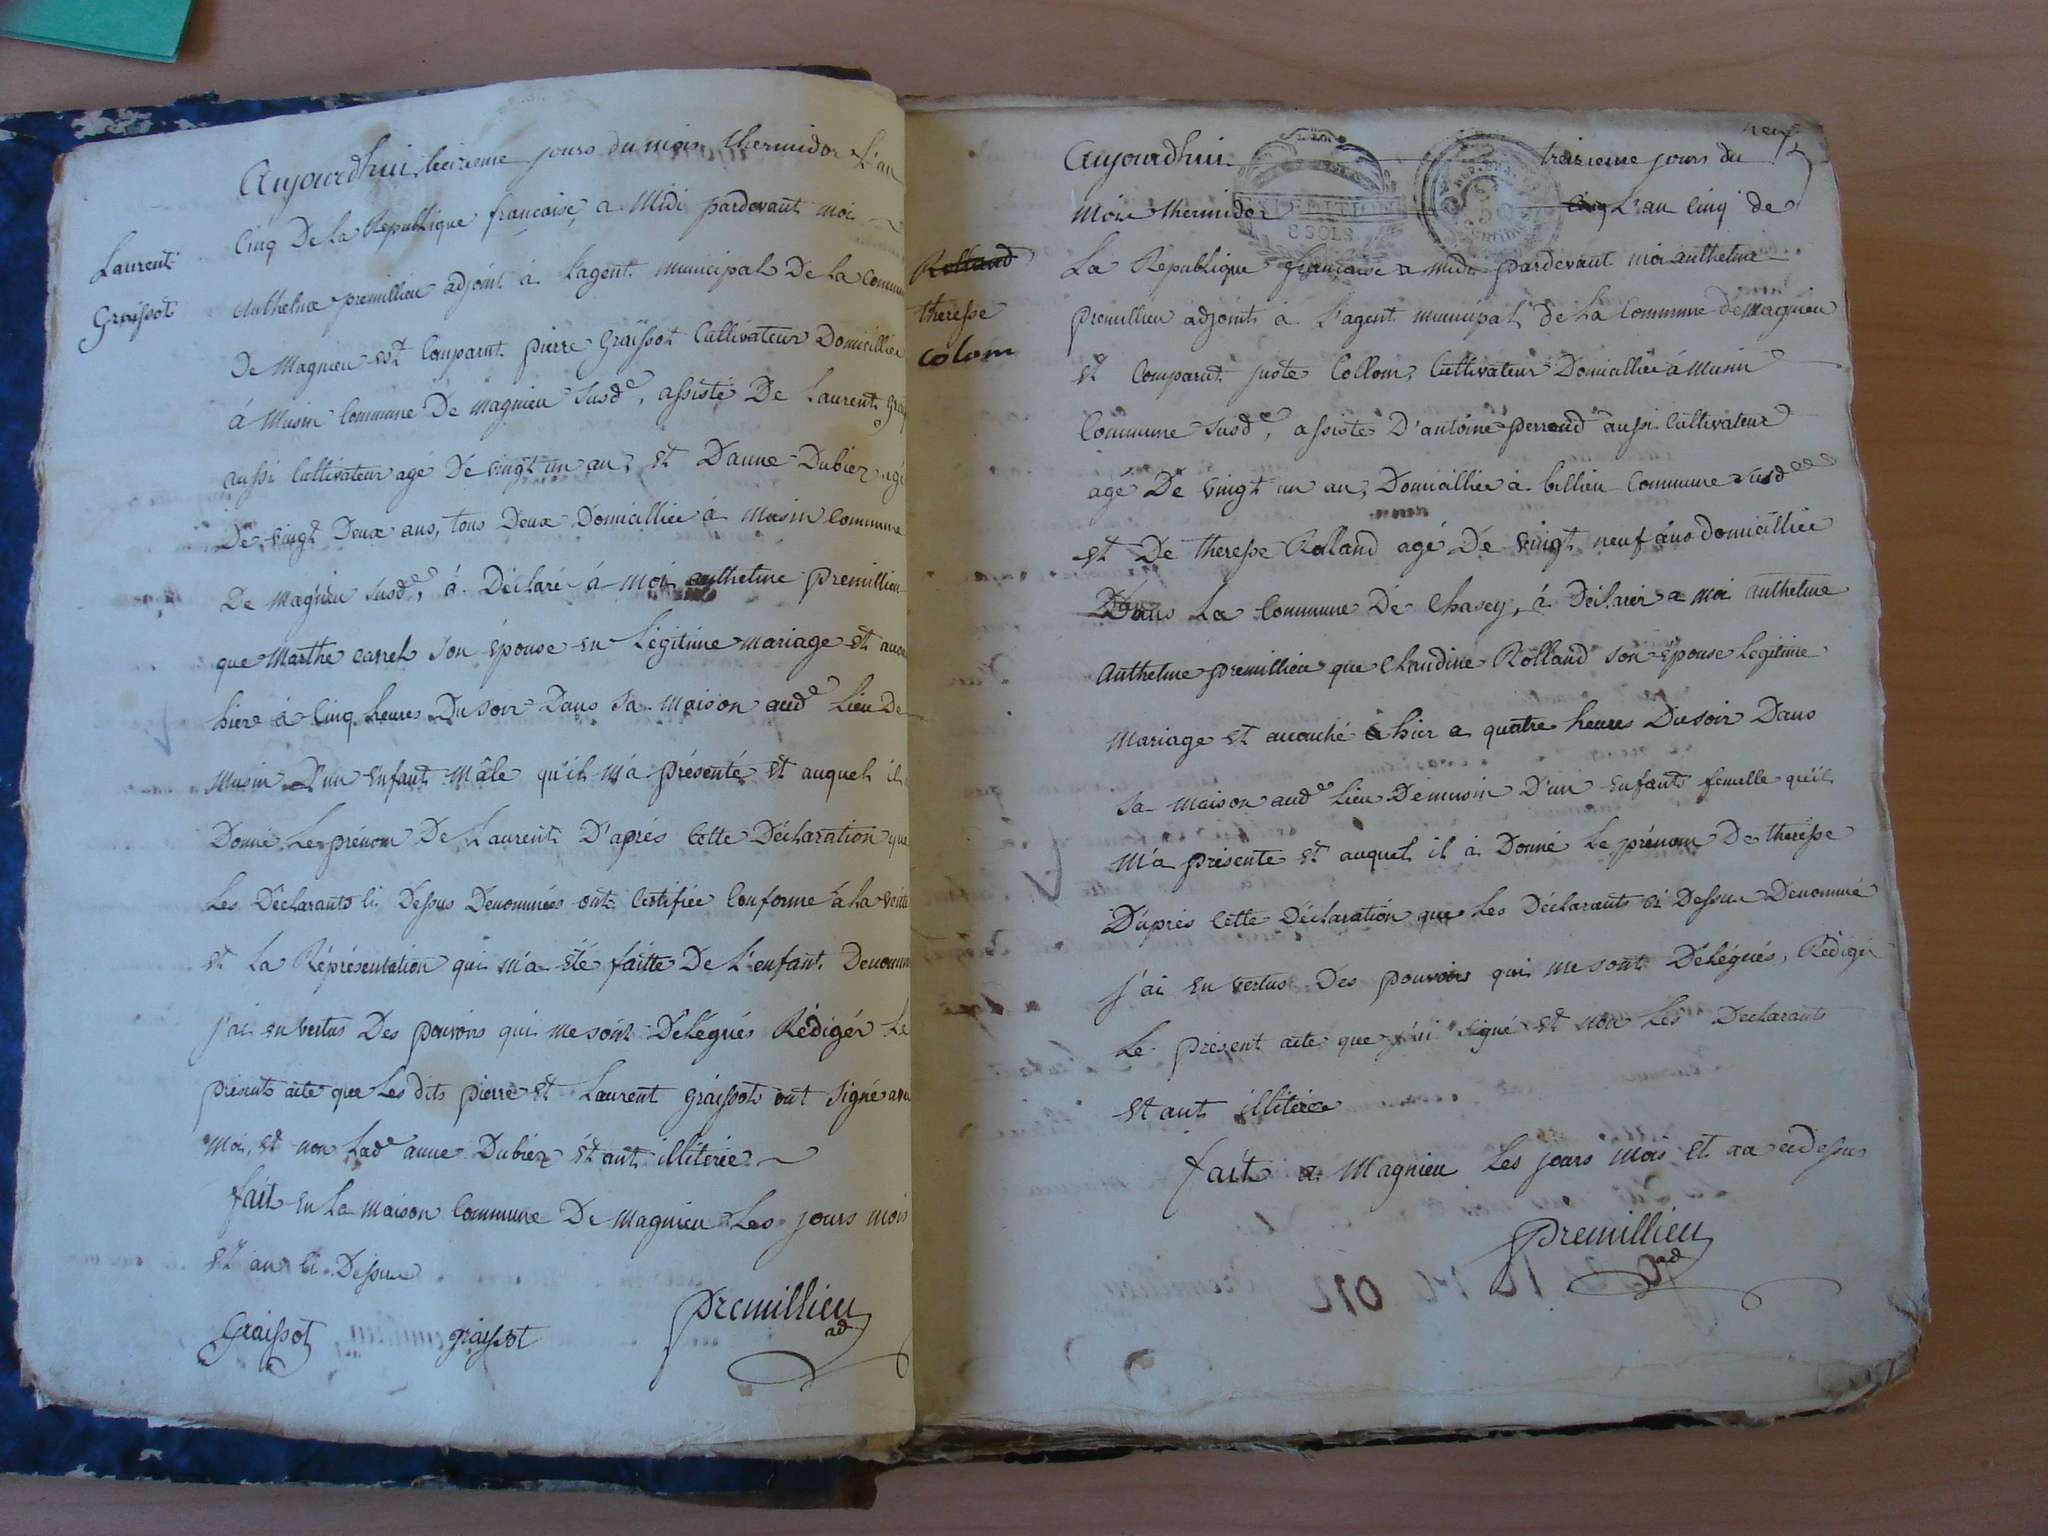 Aujourdhui, treizieme jours du mois thermidor L'an
Cinq De La Republique francaise, a Midi pardevant moi
Laurent
Graissot
Anthelme premillieu adjoint à L'agent municipal De La Commun
De Magnieu est Comparut pierre Graissot Cultivateur Domicillier
á Musin Commune De magnieu susd.e, assisté De Laurent Graj
aussi Cultivateur agé De vingt un an, et D'anne Dubiez agé
De vingt Deux ans, tous Deux Domicilliée á Musin Commune
De magnieu susd.e, á Déclaré á moi anthelme premillieu
que Marthe carrel son épouse en Légitime mariage est acou
hier á Cinq heures Du soir Dans sa maison aud.e Lieu De
Musin D'un enfant Mâle qu'il m'a présenté et auquel il
Donné Le prénom De Laurent D'aprés Cette Déclaration que
Les Déclarants Ci Dessus Denommées ont Certifiée Conforme a La verité
et La Réprésentation qui m'a eté faitte De L'enfant Denommé
j'ai en vertus Des pouvoirs qui me sont Délégués Rédigér Le
présent acte que Les dits pierre et Laurent graissots ont signé avec
Moi, et non Lad.e anne Dubiez etant illiterée
fait en La maison Commune De magnieu Les jours mois
et an Ci Dessus
Graissot graissot premillieu
ad
neuf
Aujourdhui treizieme jours du
mois thermidor Cinq L'an Cinq de
EXPEDITIONS
8 SOLS
REP. FRA.
50
centimes
Rolland
therese
Colom
La Republique francaise a midi pardevant moi anthelme
premillieu adjoint á L'agent municipal de La Commune de Magnieu
et Comparut juste Collom, Cultivateur Domicilliée á Musin
Commune susd.e, assisté D'antoine perroud aussi Cultivateur
agé De vingt un an, Domicilliée á billieu Commune susd.e
et De therese Rolland agé De vingt neuf ans domicilliée
Dans La Commune De Chasey, á Déclarér a moi anthelme
Anthelme premillieu que Claudine Rolland son epouse Legitime
Mariage et acouché á hier a quatre heures Du soir Dans
sa maison aud.e Lieu De musin D'un enfants femelle qu'il
M'a présente et auquel il á Donné Le prénom De therése
D'aprés Cette Déclaration que Les Déclarants Ci Dessus Denommé
j'ai en vertus Des pouvoirs qui me sont Délégués, Rédigér
Le présent acte que j'ai signé et non Les Déclarants
etant illiterée
fait a Magnieu Les jours mois et an ci dessus
premillieu
ad